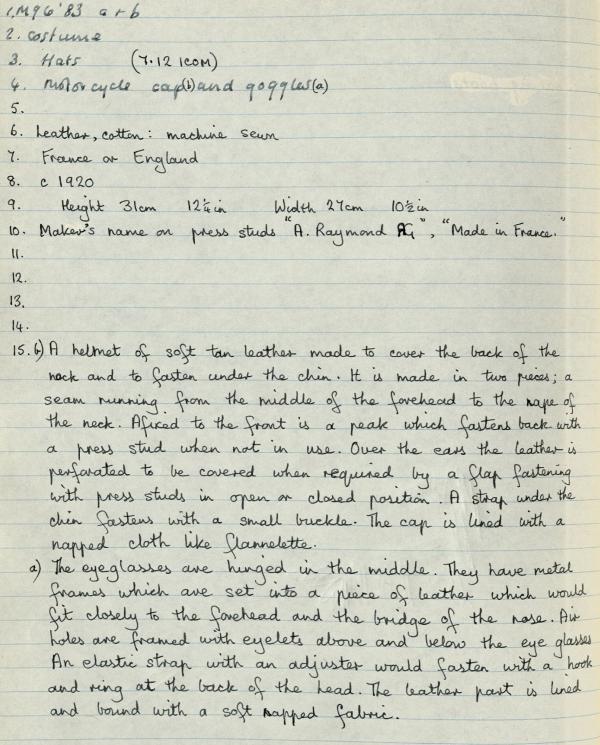 1. M96'83 a+b
2. Costume
3. Hats (7.12 ICOM)
4. Motorcycle cap(b) and goggles(a)
5.
6. Leather, cotton: machine sewn
7. France or England
8. c 1920
9. Height 31cm 12¼in Width 27cm 10½in
10. Maker's name on press studs "A. Raymond AG", "Made in France."
11.
12.
13.
14.
15. b) A helmet of soft tan leather made to cover the back of the
neck and to fasten under the chin. It is made in two pieces; a
seam running from the middle of the forehead to the nape of
the neck. Afixed to the front is a peak which fastens back with
a press stud when not in use. Over the ears the leather is
perforated to be covered when required by a flap fastening
with press studs in open or closed position. A strap under the
chin fastens with a small buckle. The cap is lined with a
napped cloth like flannelette.
a) The eyeglasses are hinged in the middle. They have metal
frames which are set into a piece of leather which would
fit closely to the forehead and the bridge of the nose. Air
holes are framed with eyelets above and below the eye glasses
An elastic strap with an adjuster would fasten with a hook
and ring at the back of the head. The leather part is lined
and bound with a soft napped fabric.